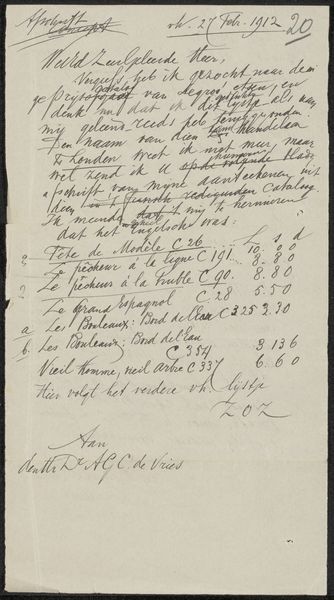 Afschrift
Concept
vh. 27 Feb. 1912
20
WelEd Zeer Geleerde Heer,
Vergeefs heb ik gezocht naar den
catalog
ge prijs van Legros' etsen, en
denk nu dat ik de lijst als aan
mij geleend reeds heb terug gezonden
Den naam van dien handelaar
te zenden weet ik niet meer, maar
wel zend ik U
afschrift van mijne aanteekeningen uit
dien Catalog.
Ik meende mij te herinneren
dat het Engelsche was:
£ s d
Tête de Modèle C 26 10. 0 0
Le pêcheur à la ligne C 191 8. 8 0
Le pêcheur à la truble C 90. 8. 8 0
Le grand Espagnol C 28 5. 5 0
a Les Bouleaux: Bord de l'Eau C 325 3. 3 0
b. Les Bouleaux: Bord de l'Eau
C 354 3 13 6
Vieil Homme, vieil arbre C 337 6. 6 0
Hier volgt het verdere vh. lijstje
ZOZ
Aan
den Hr Dr AGC de Vries